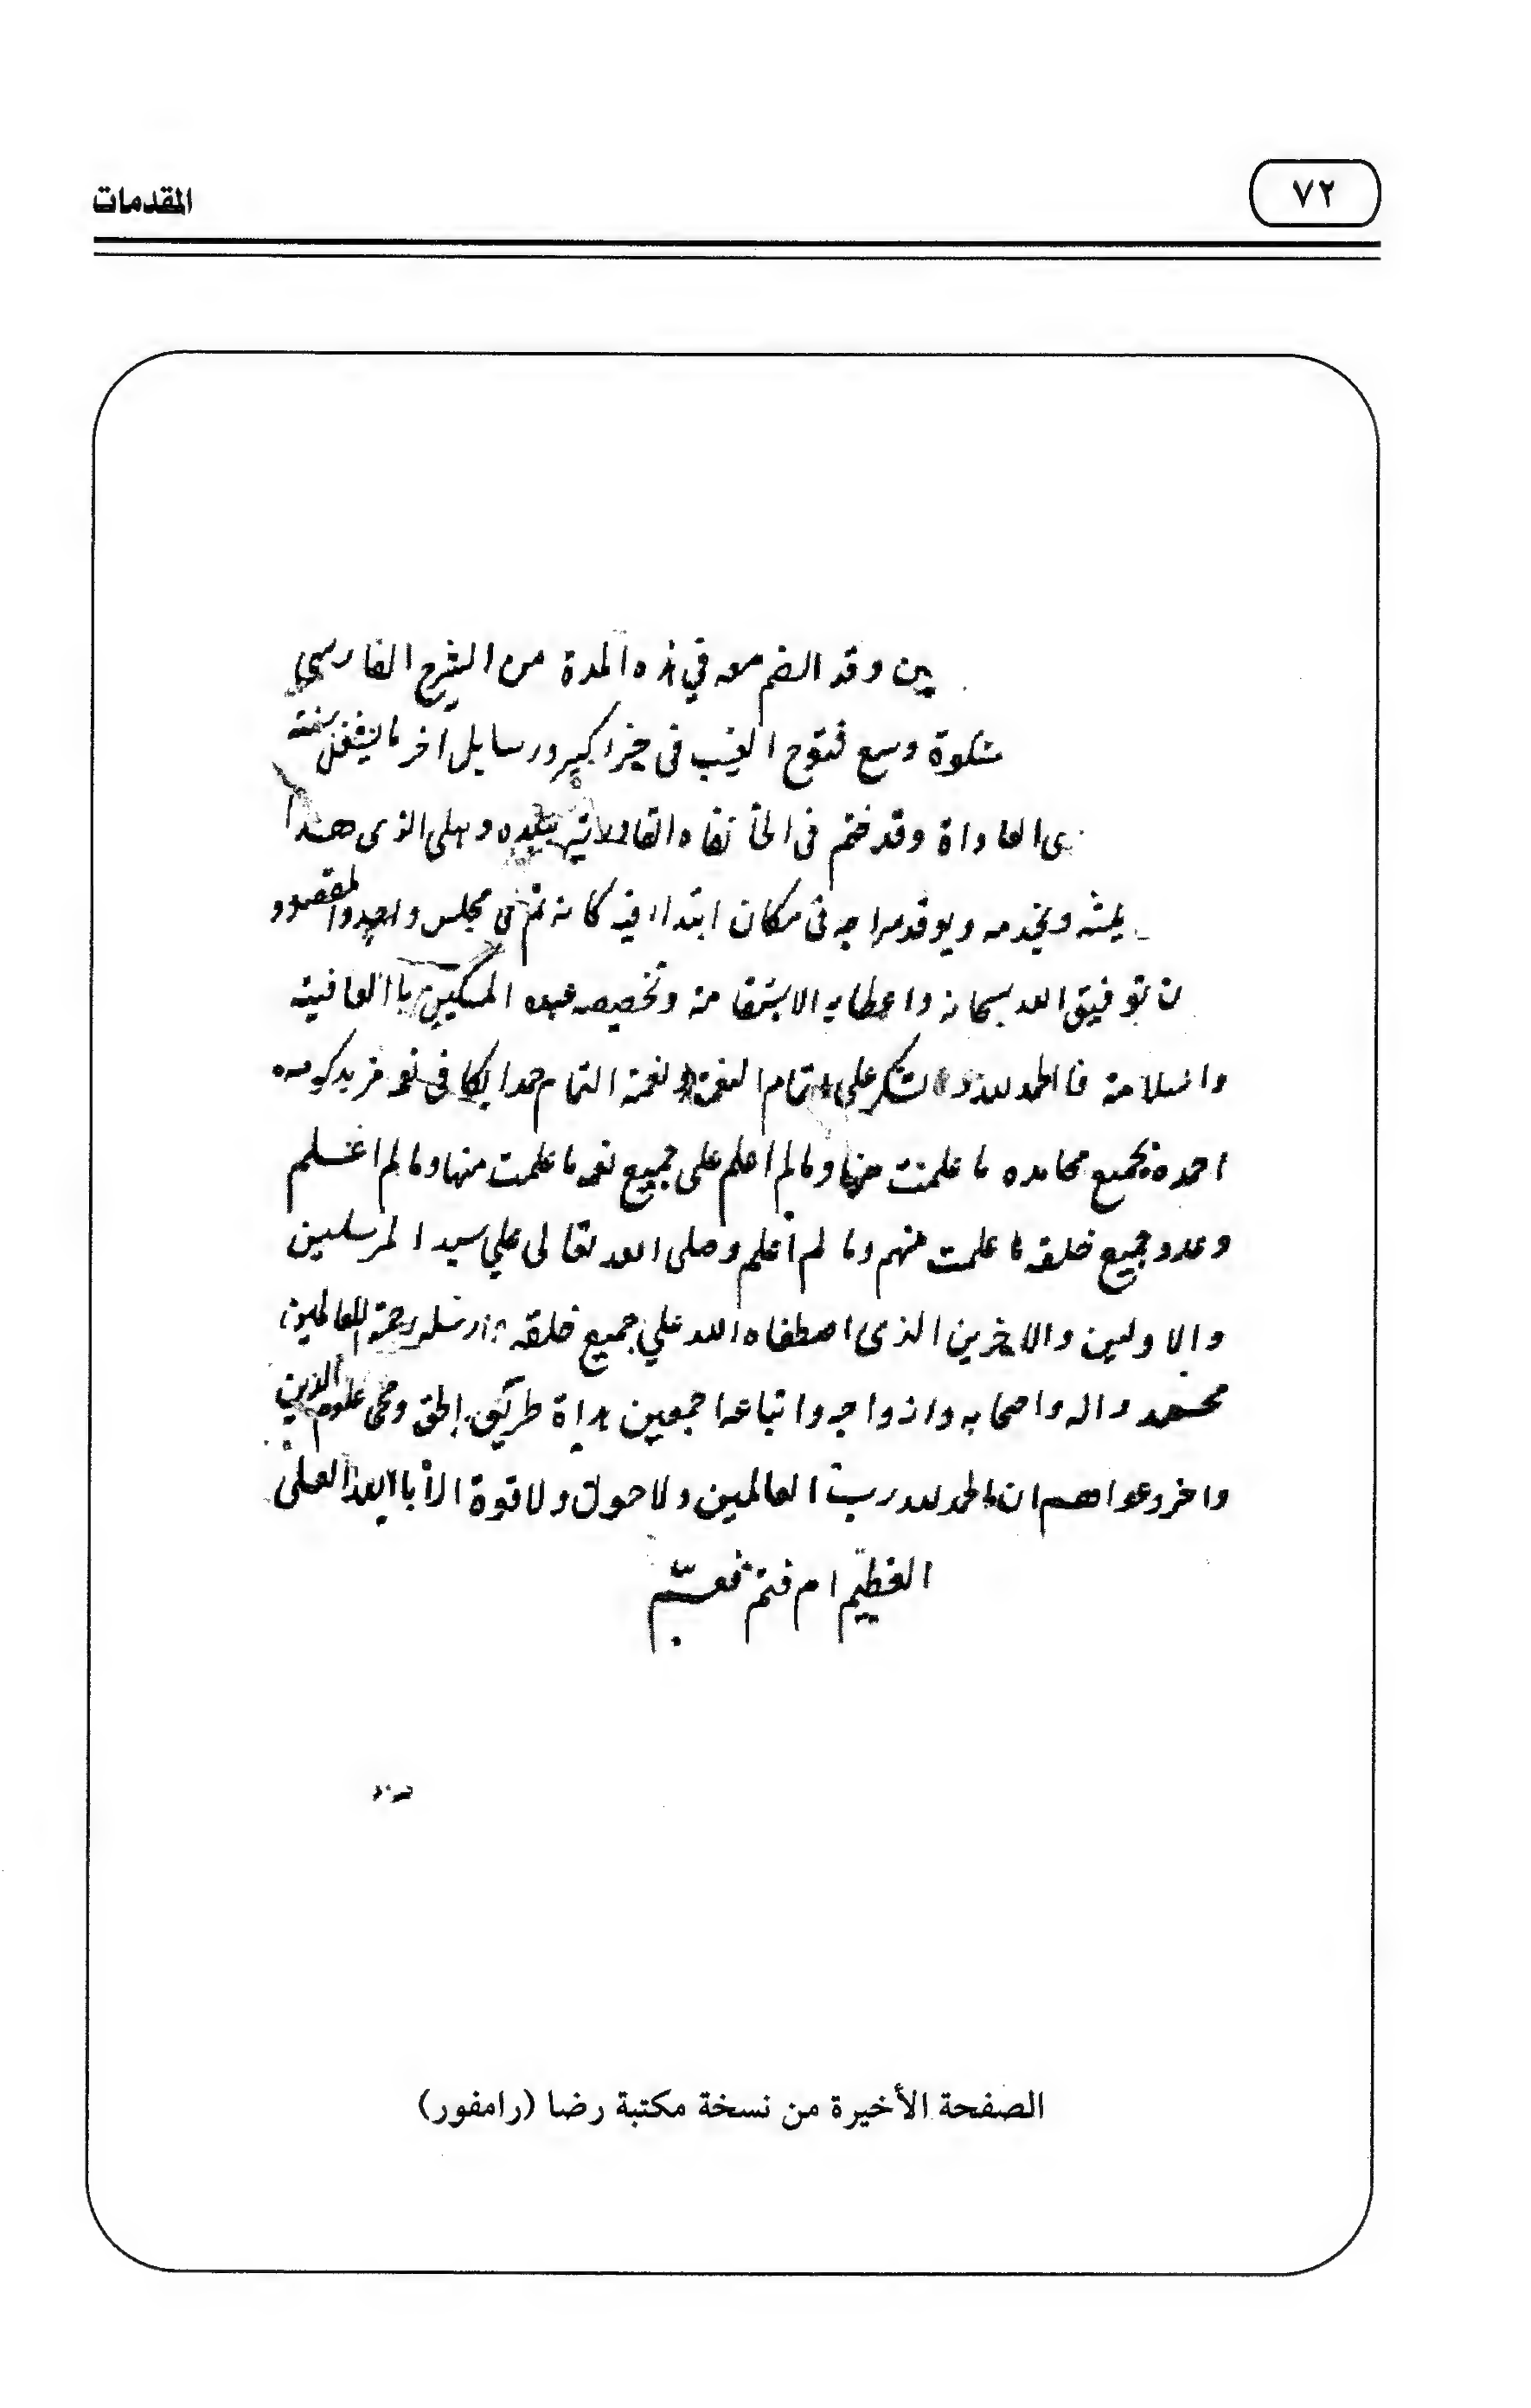 ٧٢
المقدمات
ين وقد انضم معه في هذه المدة من الشرح الفارسي
شكوة وسع فتوح الغيب فى جزا كبير ورسايل اخر ما
وقد ختم فى الخانقاه القادرية
ويخدمه ويوقد سراجه فى مكان ابتداء فيه كانه تم فى مجلس واحد والمقصود
ن توفيق الله سبحانه واعطايه الاستقامة وتخصيصه عبده المسكين باالعافية
والسلامة فا الحمد لله والشكر على اتمام النعمة ونعمة التمام حمدا يكافى نعمه مزيد كرمه
احمده بجميع محامده ما علمت منها وما لم اعلم على جميع نعمه ما علمت منها وما لم اعلم
وعدد جميع خلقه ما علمت منهم وما لم أعلم وصلى الله تعالى علي سيد المرسلين
والاولين والاخرين الذى اصطفاه الله علي جميع خلقه وارسله رحمة للعالمين
محمد واله واصحابه وازواجه واتباعه اجمعين هداة طريق الحق ومحى علوم الدين
واخر دعواهم ان الحمد لله رب العالمين ولا حول ولا قوة الا باالله العلى
العظيم
الصفحة الأخيرة من نسخة مكتبة رضا (رامفور)